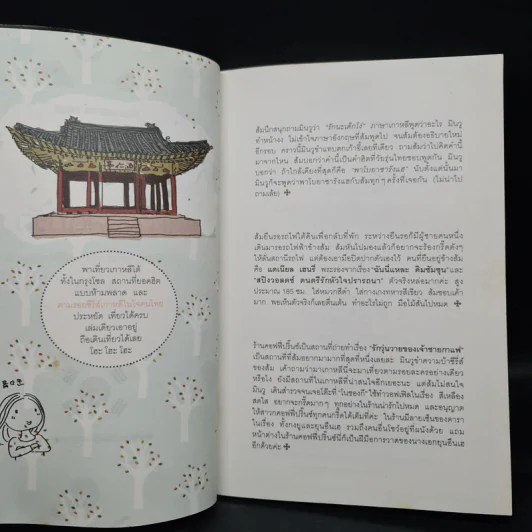 พาเที่ยวเกาหลีใต้
ทั้งในกรุงโซล สถานที่ยอดฮิต
แบบห้ามพลาด และ
ตามรอยซีรีส์เกาหลีในใจคนไทย
ประหยัด เที่ยวได้ครบ
เล่มเดียวเอาอยู่
ถือเดินเที่ยวได้เลย
โฮะ โฮะ โฮะ
ส้มนึกสนุกถามมินวูว่า "รักนะเด็กโง่" ภาษาเกาหลีพูดว่าอะไร มินวู
ทำหน้างง ไม่เข้าใจภาษาอังกฤษที่ส้มพูดไป จนส้มต้องอธิบายใหม่
อีกรอบ คราวนี้มินวูขำแทบตกเก้าอี้เลยทีเดียว ถามส้มว่าไปคิดคำนี้
มาจากไหน ส้มบอกว่าคำนี้เป็นคำฮิตที่วัยรุ่นไทยชอบพูดกัน มินวู
บอกว่า ถ้าใกล้เคียงที่สุดก็คือ "พาโบยาซารังแฮ" นับตั้งแต่นั้นมา
มินวูก็จะพูดว่าพาโบยาซารังแฮกับส้มทุกๆ ครั้งที่เจอกัน (ไม่น่าไป
ถามเล้ย)
ส้มยืนรอรถไฟใต้ดินเพื่อกลับที่พัก ระหว่างยืนรอก็มีผู้ชายคนหนึ่ง
เดินมารอรถไฟข้างส้ม ส้มหันไปมองแล้วก็อยากจะร้องกรี๊ดดังๆ
ให้ลั่นสถานีรถไฟ แต่ต้องเอามือปิดปากตัวเองไว้ คนที่ยืนอยู่ข้างส้ม
คือ แดเนียล เฮนรี่ พระรองจากเรื่อง "ฉันนี่แหละ คิมซัมซุน" และ
"สปริงวอลตซ์ ดนตรีรักหัวใจปรารถนา" ตัวจริงหล่อมากค่ะ สูง
ประมาณ 185 ซม. ใส่หมวกสีดำ ใส่กางเกงทหารสีเขียว ส้มชอบเค้า
มาก พอเห็นตัวจริงก็เลยตื่นเต้น ทำอะไรไม่ถูก มือไม้สั่นไปหมด
ร้านคอฟฟี่ปริ๊นซ์เป็นสถานที่ถ่ายทำเรื่อง "รักวุ่นวายของเจ้าชายกาแฟ"
เป็นสถานที่ที่ส้มอยากมามากที่สุดที่หนึ่งเลยล่ะ มินวูขำความบ้าซีรีส์
ของส้ม เค้าถามว่ามาเกาหลีนี่จะมาเที่ยวตามรอยละครอย่างเดียว
หรือไง ยังมีสถานที่ในเกาหลีที่น่าสนใจอีกเยอะนะ แต่ส้มไม่สนใจ
มินวู เดินสำรวจจนเจอโต๊ะที่ "โนซองกิ" ใช้ทำวอฟเฟิลในเรื่อง สีเหลือง
สดใส อยากจะกรี๊ดมากๆ ทุกอย่างในร้านน่ารักไปหมด และอนุญาต
ให้สาวกคอฟฟี่ปริ๊นซ์ทุกคนกรี๊ดได้เต็มที่ค่ะ ในร้านมีลายเซ็นของดารา
ในเรื่อง ทั้งกงยูและยุนอึนเฮ รวมถึงคนอื่นโชว์อยู่ที่ผนังด้วย แถม
หน้าต่างในร้านคอฟฟี่ปริ๊นซ์นี่ก็เป็นฝีมือการวาดของนางเอกยุนอึนเฮ
อีกด้วยค่ะ